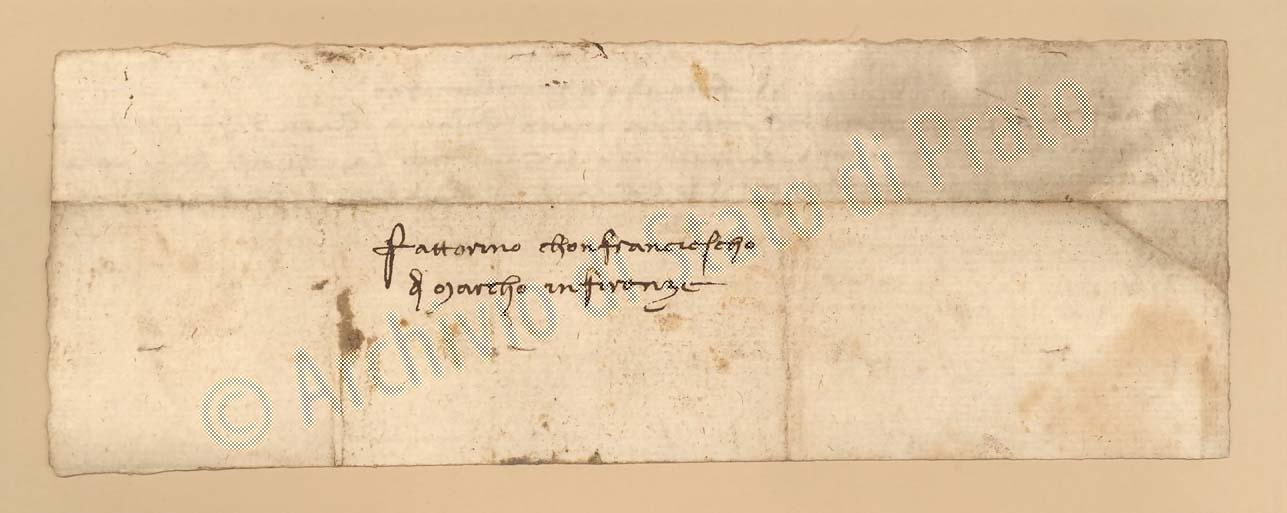 Fattorino chon franciescho
di Marcho in firenze
© Archivio di Stato di Prato